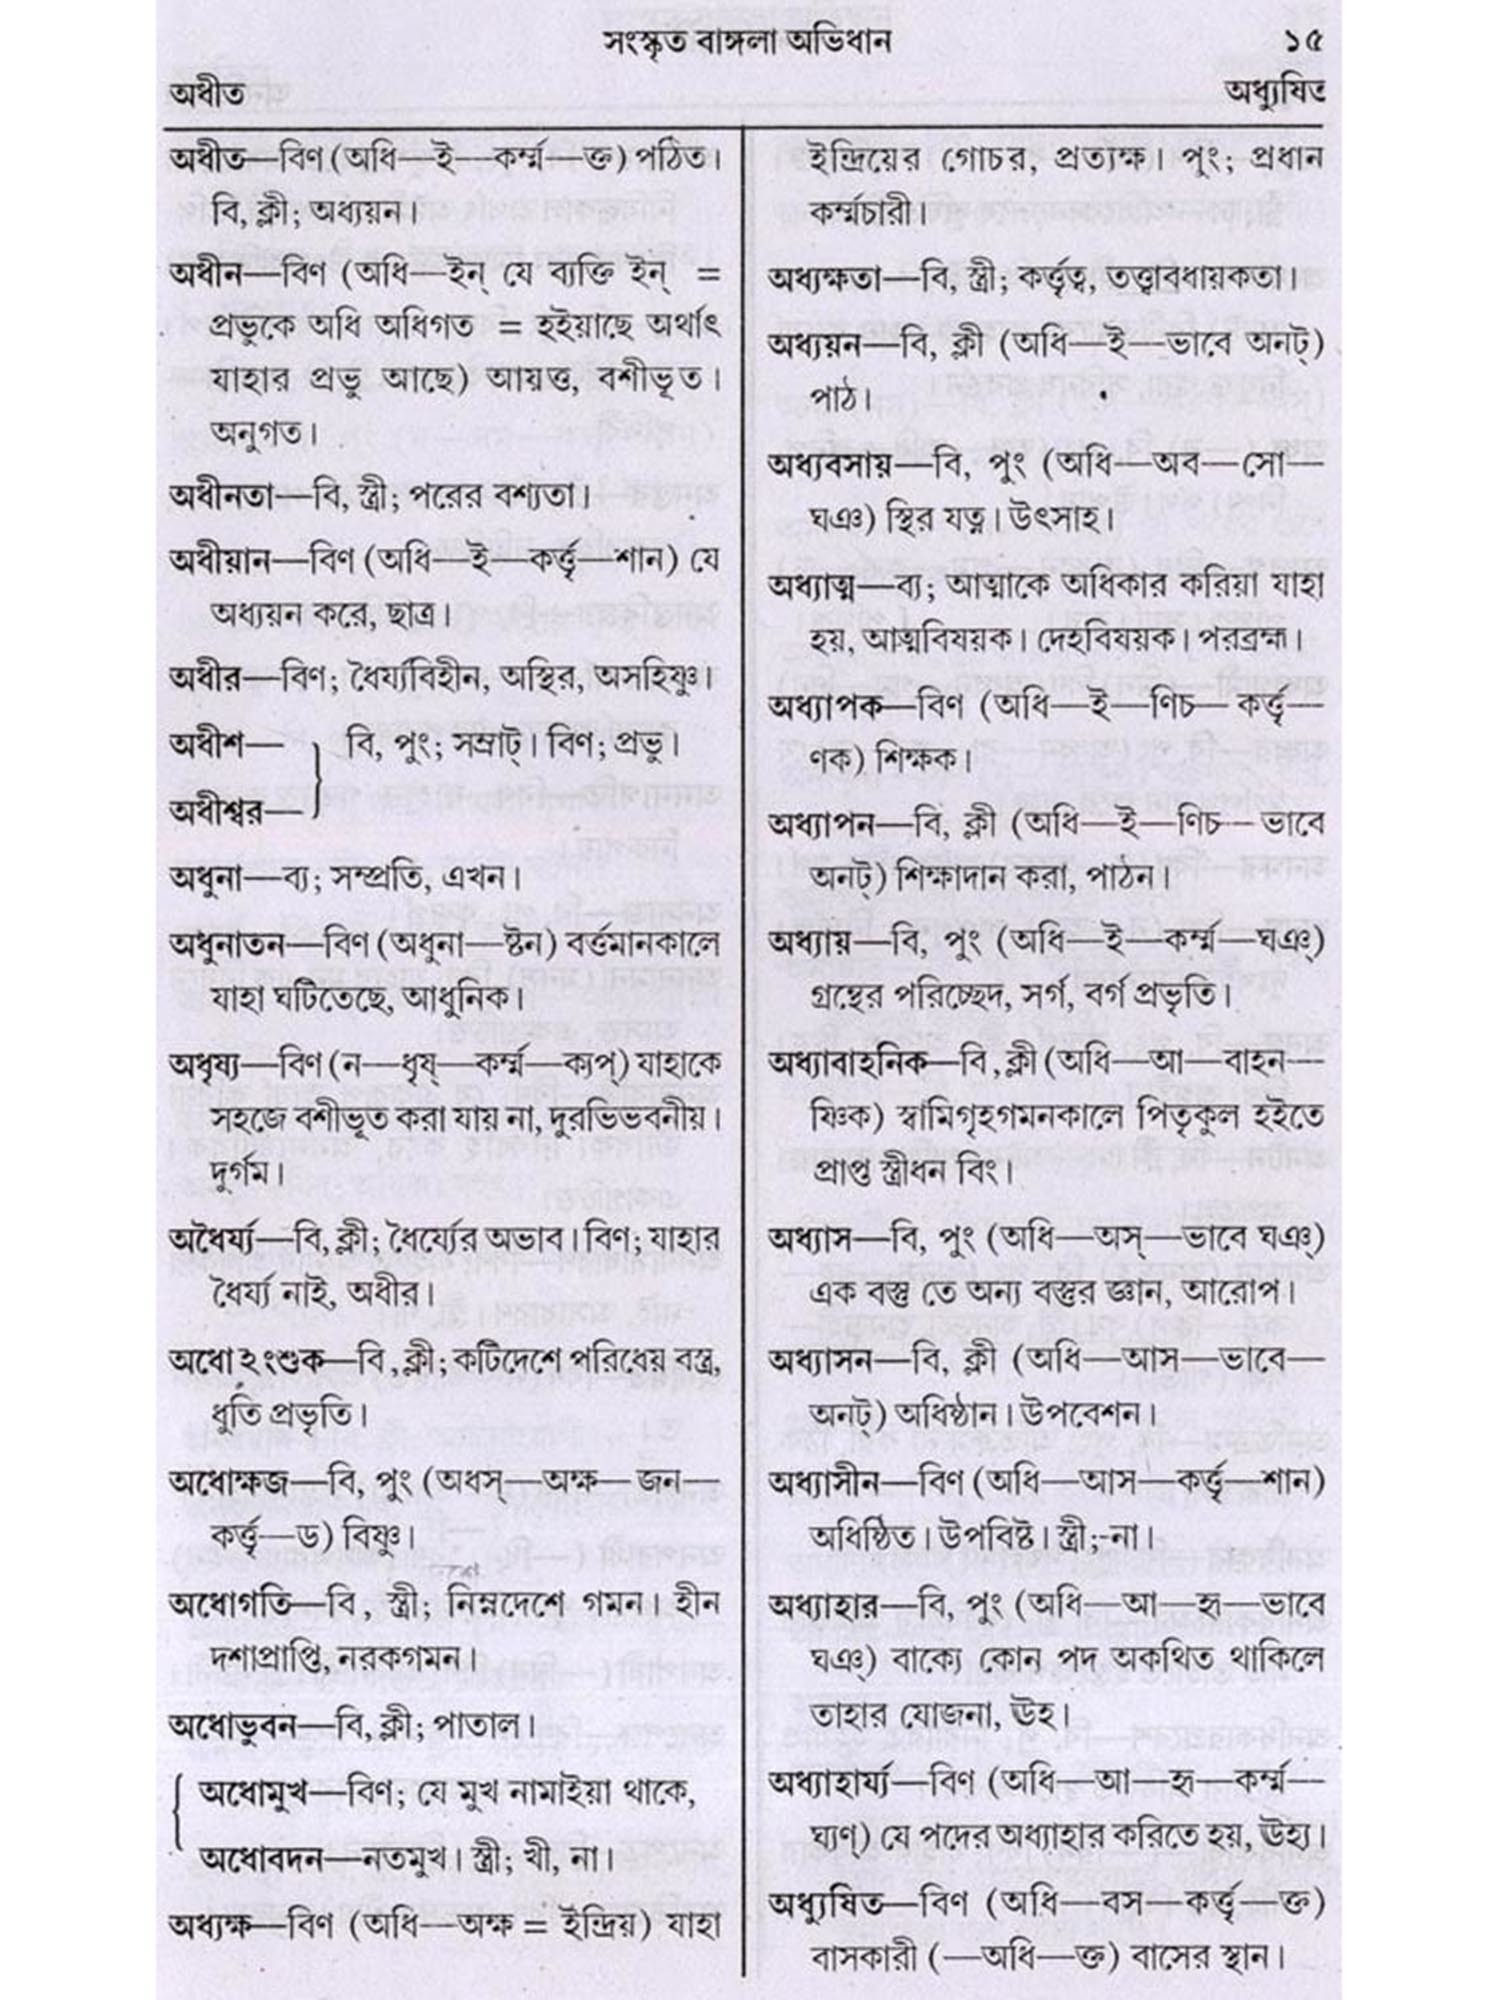 সংস্কৃত বাঙ্গলা অভিধান
১৫
অধীত
অধ্যুষিত
অধীত—বিণ (অধি—ই—কর্ম্ম—ক্ত) পঠিত।
বি, ক্লী; অধ্যয়ন।
অধীন—বিণ (অধি—ইন্ যে ব্যক্তি ইন্ =
প্রভুকে অধি অধিগত = হইয়াছে অর্থাৎ
যাহার প্রভু আছে) আয়ত্ত, বশীভূত।
অনুগত।
অধীনতা—বি, স্ত্রী; পরের বশ্যতা।
অধীয়ান—বিণ (অধি—ই—কর্ত্তৃ—শান) যে
অধ্যয়ন করে, ছাত্র।
অধীর—বিণ; ধৈর্য্যবিহীন, অস্থির, অসহিষ্ণু।
অধীশ— } বি, পুং; সম্রাট্। বিণ; প্রভু।
অধীশ্বর—
অধুনা—ব্য; সম্প্রতি, এখন।
অধুনাতন—বিণ (অধুনা—ষ্টন) বর্ত্তমানকালে
যাহা ঘটিতেছে, আধুনিক।
অধৃষ্য—বিণ (ন—ধৃষ্—কর্ম্ম—ক্যপ্) যাহাকে
সহজে বশীভূত করা যায় না, দুরভিভবনীয়।
দুর্গম।
অধৈর্য্য—বি, ক্লী; ধৈর্য্যের অভাব। বিণ; যাহার
ধৈর্য্য নাই, অধীর।
অধোঽংশুক—বি, ক্লী; কটিদেশে পরিধেয় বস্ত্র,
ধুতি প্রভৃতি।
অধোক্ষজ—বি, পুং (অধস্—অক্ষ—জন—
কর্ত্তৃ—ড) বিষ্ণু।
অধোগতি—বি, স্ত্রী; নিম্নদেশে গমন। হীন
দশাপ্রাপ্তি, নরকগমন।
অধোভুবন—বি, ক্লী; পাতাল।
{ অধোমুখ—বিণ; যে মুখ নামাইয়া থাকে,
অধোবদন—নতমুখ। স্ত্রী; খী, না।
অধ্যক্ষ—বিণ (অধি—অক্ষ = ইন্দ্রিয়) যাহা
ইন্দ্রিয়ের গোচর, প্রত্যক্ষ। পুং; প্রধান
কর্ম্মচারী।
অধ্যক্ষতা—বি, স্ত্রী; কর্ত্তৃত্ব, তত্ত্বাবধায়কতা।
অধ্যয়ন—বি, ক্লী (অধি—ই—ভাবে অনট্)
পাঠ।
অধ্যবসায়—বি, পুং (অধি—অব—সো—
ঘঞ) স্থির যত্ন। উৎসাহ।
অধ্যাত্ম—ব্য; আত্মাকে অধিকার করিয়া যাহা
হয়, আত্মবিষয়ক। দেহবিষয়ক। পরব্রহ্ম।
অধ্যাপক—বিণ (অধি—ই—ণিচ—কর্ত্তৃ—
ণক) শিক্ষক।
অধ্যাপন—বি, ক্লী (অধি—ই—ণিচ—ভাবে
অনট্) শিক্ষাদান করা, পাঠন।
অধ্যায়—বি, পুং (অধি—ই—কর্ম্ম—ঘঞ্)
গ্রন্থের পরিচ্ছেদ, সর্গ, বর্গ প্রভৃতি।
অধ্যাবাহনিক—বি, ক্লী (অধি—আ—বাহন—
ষ্ণিক) স্বামিগৃহগমনকালে পিতৃকুল হইতে
প্রাপ্ত স্ত্রীধন বিং।
অধ্যাস—বি, পুং (অধি—অস্—ভাবে ঘঞ্)
এক বস্তু তে অন্য বস্তুর জ্ঞান, আরোপ।
অধ্যাসন—বি, ক্লী (অধি—আস—ভাবে—
অনট্) অধিষ্ঠান। উপবেশন।
অধ্যাসীন—বিণ (অধি—আস—কর্ত্তৃ—শান)
অধিষ্ঠিত। উপবিষ্ট। স্ত্রী;-না।
অধ্যাহার—বি, পুং (অধি—আ—হৃ—ভাবে
ঘঞ্) বাক্যে কোন পদ অকথিত থাকিলে
তাহার যোজনা, ঊহ।
অধ্যাহার্য্য—বিণ (অধি—আ—হৃ—কর্ম্ম—
ঘ্যণ্) যে পদের অধ্যাহার করিতে হয়, ঊহ্য।
অধ্যুষিত—বিণ (অধি—বস—কর্ত্তৃ—ক্ত)
বাসকারী (—অধি—ক্ত) বাসের স্থান।